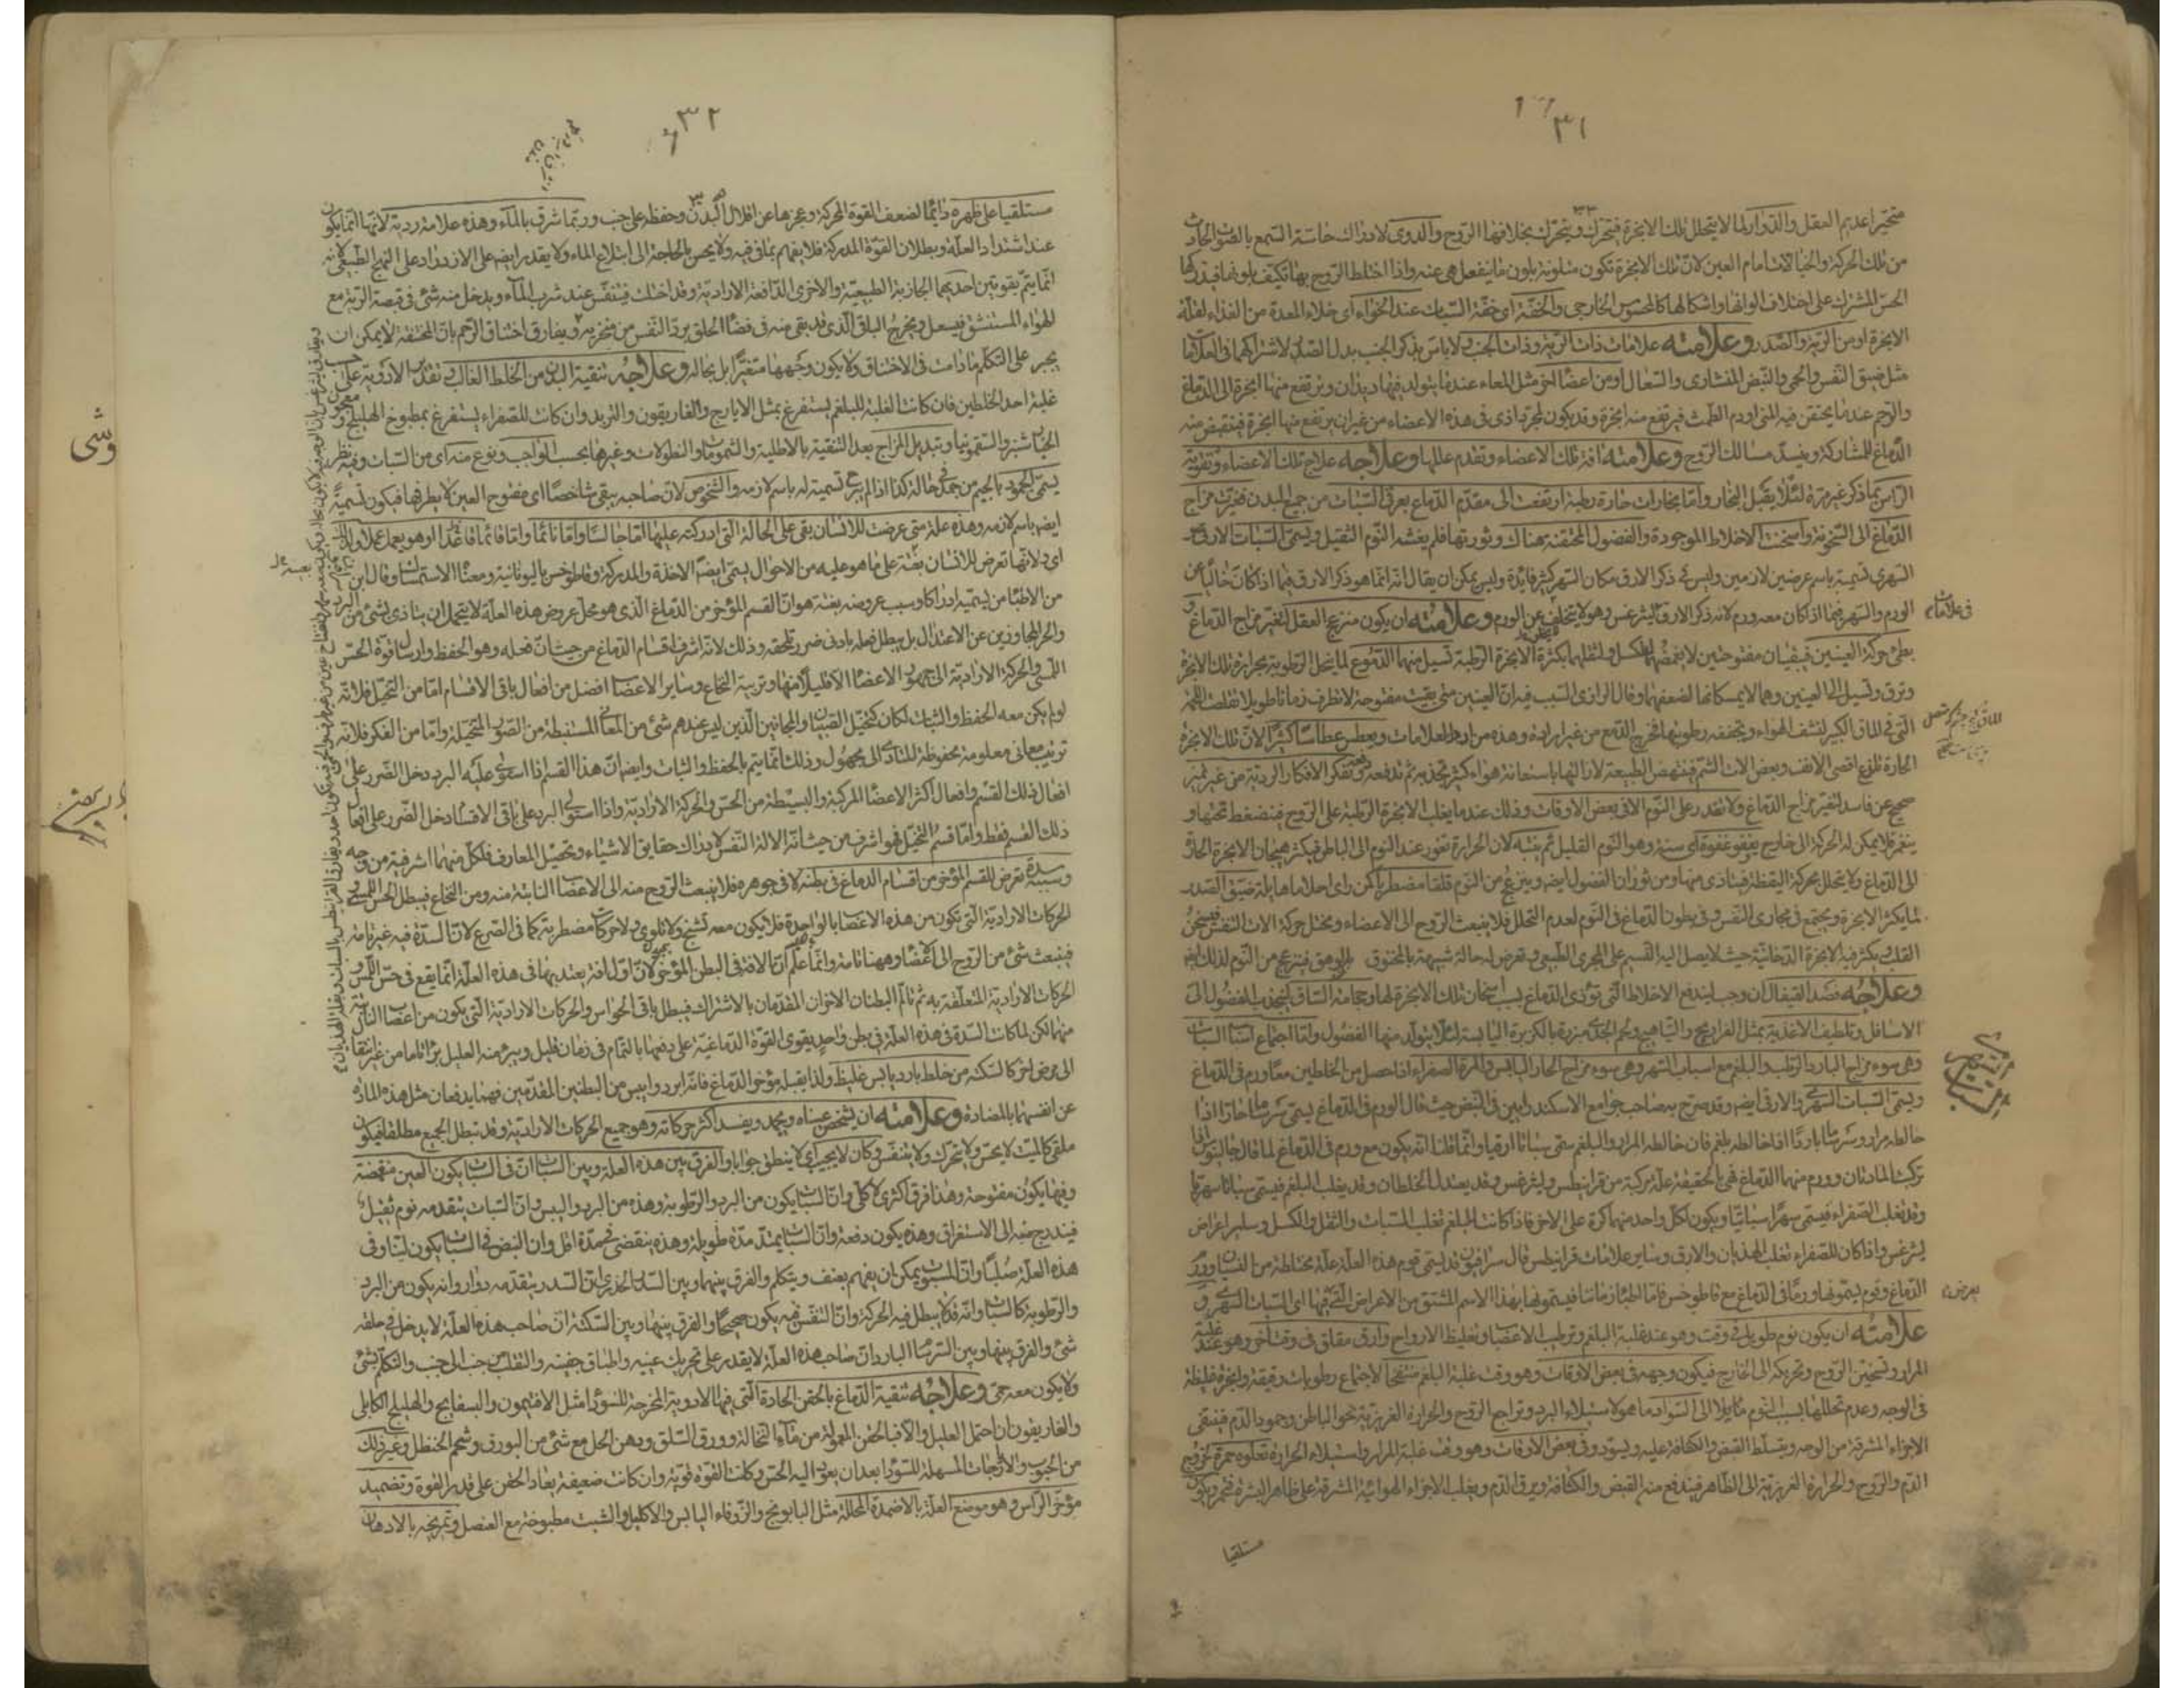 ٣١
متحيرا عديم العقل والدوار لما لا يتحلل تلك الابخرة فيتحرك ويتحرك بخلافها الروح والدوى لادراك حاسة السمع بالصوت الحادث
من تلك الحركة والخيالات امام العين لان تلك الابخرة تكون متلونة بلون ما ينفعل هى عنه واذا اختلط الروح بها تكيف بلونها فيدركها
الحس المشترك على اختلاف الوانها واشكالها كالمحسوس الخارجى والخفة اى خفة السبات عند الخواء اى خلاء المعدة من الغذاء لقلة
الابخرة او من الرية والصدر وعلامته علامات ذات الرية وذات الجنب ولا باس بذكر الجنب بدل الصدر لاشتراكهما فى العلامات
مثل ضيق النفس والحمى والنبض المنشارى والسعال او من اعضا اخر مثل المعاء عندما يتولد فيها ديدان ويرتفع منها ابخرة الى الدماغ
والرحم عندما يحتقن فيه المنى او دم الطمث فيرتفع منه ابخرة وقد يكون لمجرد اذى فى هذه الاعضاء من غير ان يرتفع منها ابخرة فينقبض منه
الدماغ للمشاركة وينسد مسالك الروح وعلامته افة تلك الاعضاء وتقدم عللها وعلاجه علاج تلك الاعضاء وتقوية
الراس بما ذكر غير مرة لئلا يقبل البخار واما بخارات حارة رطبة ارتفعت الى مقدم الدماغ يعرى السبات من جميع البدن فغيرت مزاج
الدماغ الى السخونة واسخنت الاخلاط الموجودة والفضول المحتقنة هناك وثورتها فلم يغشه النوم الثقيل ويسمى السبات الارقى
السهرى تسمية باسم عرضين لازمين وليس فى ذكر الارق مكان السهر كثير فايدة وليس يمكن ان يقال انه انما هو ذكر الارق فيما اذا كان خاليا عن
الورم والسهر فيما اذا كان معه ورم لانه ذكر الارق فى ليثرغس وهو لا يتخلف عن الورم وعلامته ان يكون منزعج العقل لتغير مزاج الدماغ
بطئ حركة العينين فيبقيان مفتوحتين لا يغمضهما لكسل ولثقلهما بكثرة الابخرة الرطبة تسيل منهما الدموع لما ينحل الرطوبة بحرارة تلك الابخرة
وترق وتسيل الى العينين وهما لا يمسكانها لضعفهما وقال الرازى السبب فيه ان العينين متى بقيت مفتوحة لا تطرف زمانا طويلا تقلصت اللحمة
التى فى الماق الكبير لنشف الهواء وتجففه رطوبتها فخرج الدمع من غير ارادة وهذه من اردأ العلامات ويعطس عطاسا كثيرا لان تلك الابخرة
الحارة تلذع اقصى الانف وبعض الات الشم فينهض الطبيعة لازالتها باستعانة هواء كثير تجذبه ثم تدفعه وتفكر الافكار الردية من غير تميز
صحيح عن فاسد لتغير مزاج الدماغ ولا يقدر على النوم الا فى بعض الاوقات وذلك عندما يغلب الابخرة الرطبة على الروح فينضغط تحتها و
ينغمر فلا يمكن له الحركة الى خارج يغفو غفوة اى سنة وهو النوم القليل ثم ينتبه لان الحرارة تغور عند النوم الى الباطن فيكثر هيجان الابخرة الحارة
الى الدماغ ولا يتحلل بحركة اليقظة فيتاذى منها ومن ثوران الفضول ايضه وينزعج من النوم قلقا مضطربا كمن راى احلاما هايلة ضيق الصدر
لما يكثر الابخرة ويجتمع فى مجارى النفس وفى بطون الدماغ فى النوم لعدم التحلل فلا ينبعث الروح الى الاعضاء ويختل حركة الات التنفس فيسخن
القلب بكثرة فيه الابخرة الدخانية حيث لا يصل اليه النسيم على المجرى الطبيعى وتعرض له حالة شبيهة بالمخنوق بالوهق فينزعج من النوم لذلك ايضه
وعلاجه فصد القيفال ان وجب ليندفع الاخلاط التى تؤذى الدماغ بسبب اسخان تلك الابخرة لها وحجامة الساق لتجذب الفضول الى
الاسافل وتلطيف الاغذية بمثل الفراريج والتياهيج ولحم الجدى مبزرة بالكزبرة اليابسة لئلا يتولد منها الفضول واما اجتماع اسباب السبات
وهى سوء مزاج البارد الرطب والبلغم مع اسباب السهر وهى سوء مزاج الحار اليابس والمرة الصفراء اذا حصل من الخلطين معا ورم فى الدماغ
ويسمى السبات السهرى والارقى ايضه وقد صرح به صاحب جوامع الاسكندرانيين فى النبض حيث قال الورم فى الدماغ يسمى سرساما حارا اذا
خالطه مرار وسرساما باردا اذا خالطه بلغم فان خالطه المرار والبلغم سمى سباتا ارقيا وانما قلنا انه يكون مع ورم فى الدماغ لما قال جالينوس اذا
تركبت المادتان وورم منهما الدماغ فهى بالحقيقة علة مركبة من قرانيطس وليثرغس وقد يعتدل الخلطان وقد يغلب البلغم فيسمى سباتا سهريا
وقد تغلب الصفراء فيسمى سهرا سباتيا ويكون لكل واحد منهما كرة على الاخر فاذا كانت للبلغم تغلب السبات والثقل والكسل وساير اعراض
ليثرغس واذا كان للصفراء تغلب الهذيان والارق وساير علامات قرانيطس قال سرافيون قد يسمى قوم هذه العلة علة مختلطة من النسيان وورم
الدماغ وقوم يسمونها ورما فى الدماغ مع قاطوخس فاما اطباء زماننا فيسمونها بهذا الاسم المشتق من الاعراض التى فيها اى السبات السهرى و
علامته ان يكون نوم طويل فى وقت وهو عند غلبة البلغم وترطيب الاعضا وتغليظ الارواح وارق مقلق فى وقت اخر وهو عند غلبة
المرار وتسخين الروح وتحريكه الى الخارج فيكون وجهه فى بعض الاوقات وهو وقت غلبة البلغم منتفخا لاجتماع رطوبات رقيقة وابخرة غليظة
فى الوجه وعدم تحللها بسبب النوم مايلا الى السواد ما هو لاستيلاء البرد وتراجع الروح والحرارة الغريزية نحو الباطن وجمود الدم فينتفى
الاجزاء المشرقة من الوجه ويتسلط القبض والكثافة عليه ويسود وفى بعض الاوقات وهو وقت غلبة المرار واستيلاء الحرارة تعلوه حمرة لخروج
الدم والروح والحرارة الغريزية الى الظاهر فيندفع منه القبض والكثافة ويرق الدم ويغلب الاجزاء الهوائية المشرقة على ظاهر البشرة فيحمر ويكون
مستلقيا
٣٢
مستلقيا على ظهره دائما لضعف القوة المحركة وعجزها عن اقلال البدن وحفظه على جنب وربما شرق بالماء وهذه علامة ردية لانها انما يكون
عند اشتداد العلة وبطلان القوة المدركة فلا يفهم بما فى فيه ولا يحس بالحاجة الى ابتلاع الماء ولا يقدر ايضه على الازدراد على النهج الطبيعى لانه
انما يتم بقوتين احديهما الجاذبة الطبيعية والاخرى الدافعة الارادية وقد اختلت فيتنفس عند شرب الماء ويدخل منه شئ فى قصبة الرية مع
الهواء المستنشق فيسعل ويخرج الباقى الذى قد بقى منه فى فضاء الحلق برد النفس من منخريه ويفارق اختناق الرحم بان المختنقة لا يمكن ان
يجبر على التكلم ما دامت فى الاختناق ولا يكون وجهها متغيرا بل بحاله وعلاجه تنقية البدن من الخلط الغالب فى تقدير الادوية على حسب
غلبة احد الخلطين فان كانت الغلبة للبلغم يستفرغ بمثل الايارج والغاريقون والتربد وان كانت للصفراء يستفرغ بمطبوخ الهليلج و
الخيارشنبر والسقمونيا وتبديل المزاج بعد التنقية بالاطلية والشمومات والنطولات وغيرها بحسب الواجب ونوع منه اى من السبات وفيه نظر
يسمى الجمود بالجيم من جمدت حاله كذا اذا لم يبرح تسمية له باسم لازمه والشخوص لان صاحبه يبقى شاخصا اى مفتوح العين لا يطرفها فيكون تسمية
ايضه باسم لازمه وهذه علة متى عرضت للانسان بقى على الحالة التى ادركته عليها اما جالسا واما نائما واما قائما قاعدا او هو يعمل عملا
اى لانها تعرض للانسان بغتة على ما هو عليه من الاحوال يسمى ايضه الاخذة والمدركة وقاطوخس باليونانية ومعناه الاستمساك وقال ابن
من الاطباء من يسميه ادراكا وسبب عروضه بغتة هو ان القسم المؤخر من الدماغ الذى هو محل عروض هذه العلة لا يتحمل ان يتاذى بشئ من البرد
والحر المجاوزين عن الاعتدال بل يبطل فعله بادنى ضرر تلحقه وذلك لانه اشرف اقسام الدماغ من حيث ان فعله وهو الحفظ وارسال قوة الحس
اللمسى والحركة الارادية الى جمهور الاعضا الا قليلا منها وتربية النخاع وساير الاعصاب افضل من افعال باقى الاقسام اما من التخيل فلانه
لو لم يكن معه الحفظ والثبات لكان كتخيل الصبيان والمجانين الذين ليس عندهم شئ من المعانى المستنبطة من الصور المتخيلة واما من الفكر فلانه
ترتيب معانى معلومة محفوظة للتادى الى مجهول وذلك انما يتم بالحفظ والثبات وايضا ان هذا القسم اذا استولى عليه البرد دخل الضرر على
افعال ذلك القسم وافعال اكثر الاعضا المركبة والبسيطة من الحس والحركة الارادية واذا استولى البرد على باقى الاقسام دخل الضرر على افعال
ذلك القسم فقط واما قسم التخيل فهو اشرف من حيث انه الالة للنفس لادراك حقايق الاشياء وتحصيل المعارف فلكل منهما اشرفية من وجه
وسببه سدة تعرض للقسم المؤخر من اقسام الدماغ فى بطنه لا فى جوهره فلا ينبعث الروح منه الى الاعصاب النابتة منه ومن النخاع فيبطل الحس اللمسى و
الحركات الارادية التى تكون من هذه الاعصاب بالواحدة فلا يكون معه تشنج ولا تلوى ولا حركات مضطربة كما فى الصرع لان السدة فيه غير تامة
فينبعث شئ من الروح الى الاعضا وههنا تامة وانما علم ان الافة فى البطن المؤخر لان اول افة يعتد بها فى هذه العلة انما يقع فى حس اللمس و
الحركات الارادية المتعلقة به ثم تالم البطنان الاخران المقدمان بالاشتراك فيبطل باقى الحواس والحركات الارادية التى يكون من اعصاب الناشئة
منهما لكن لما كانت السدة فى هذه العلة فى بطن واحد يقوى القوة الدماغية على دفعها بالتمام فى زمان قليل ويبرء منه العليل برءا تاما من غير انتقال
الى مرض اخر كالسكتة من خلط بارد يابس غليظ ولذا يقبله مؤخر الدماغ فانه ابرد وايبس من البطنين المقدمين فهما يدفعان مثل هذه المادة
عن انفسهما بالمضادة وعلامته ان يشخص عيناه ويجمد ويفسد اكثر حركاته وهو جميع الحركات الارادية وقد تبطل الجميع مطلقا فيكون
ملقى كالميت لا يحس ولا يتحرك ولا يتنفس وكان لا يجيب اى لا ينطق جوابا والفرق بين هذه العلة وبين السبات ان فى السبات يكون العين منغمضة
وفيها يكون مفتوحة وهذا فرق اكثرى لا كلى وان السبات يكون من البرد والرطوبة وهذه من البرد واليبس وان السبات يتقدمه نوم ثقيل
فيتدرج منه الى الاستغراق وهذه يكون دفعة وان السبات يمتد مدة طويلة وهذه ينقضى فى مدة اقل وان النبض فى السبات يكون لينا وفى
هذه العلة صلبا وان المسبوت يمكن ان يفهم بعنف ويتكلم والفرق بينهما وبين السدر الخدرى ان السدر يتقدمه دوار وانه يكون من البرد
والرطوبة كالسبات وانه قد لا يبطل فيه الحركة وان التنفس فيه يكون صحيحا والفرق بينها وبين السكتة ان صاحب هذه العلة لا يدخل فى حلقه
شئ والفرق بينها وبين السرسام البارد ان صاحب هذه العلة لا يقدر على تحريك عينيه واطباق جفنيه والتقلب من جنب الى جنب والتكلم بشئ
ولا يكون معه حمى وعلاجه تنقية الدماغ بالحقن الحادة التى فيها الادوية المخرجة للسودا مثل الافتيمون والبسفايج والهليلج الكابلى
والغاريقون ان احتمل العليل والا فبالحقن المعمولة من ماء النخالة وورق السلق ودهن الحل مع شئ من البورق وشحم الحنظل وغير ذلك
من الحبوب والايارجات المسهلة للسودا بعد ان يعود اليه الحس وكانت القوة قوية وان كانت ضعيفة يعاد الحقن على قدر القوة وتضميد
مؤخر الراس وهو موضع العلة بالاضمدة المحللة مثل البابونج والزوفاء اليابس والاكليل والشبت مطبوخة مع العنصل وتمريخه بالادهان